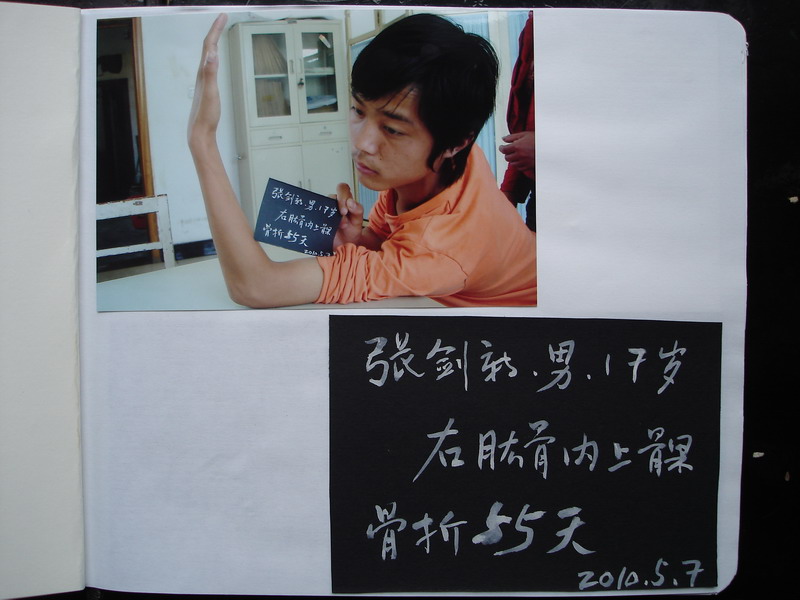 张剑新.男.17岁
右肱骨内上髁
骨折55天
2010.5.7
张剑新.男.17岁
右肱骨内上髁
骨折55天
2010.5.7